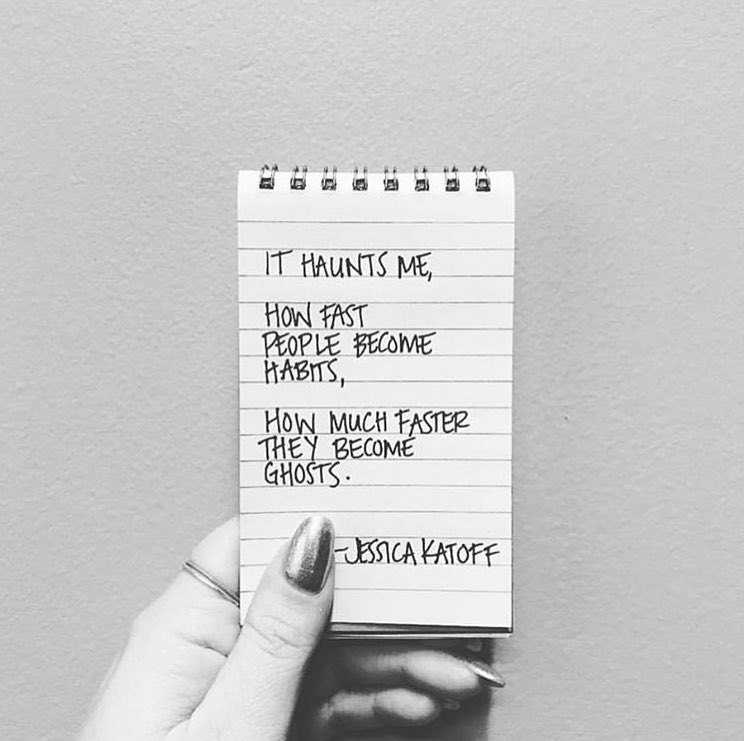 IT HAUNTS ME,
HOW FAST
PEOPLE BECOME
HABITS,
HOW MUCH FASTER
THEY BECOME
GHOSTS.
-JESSICA KATOFF